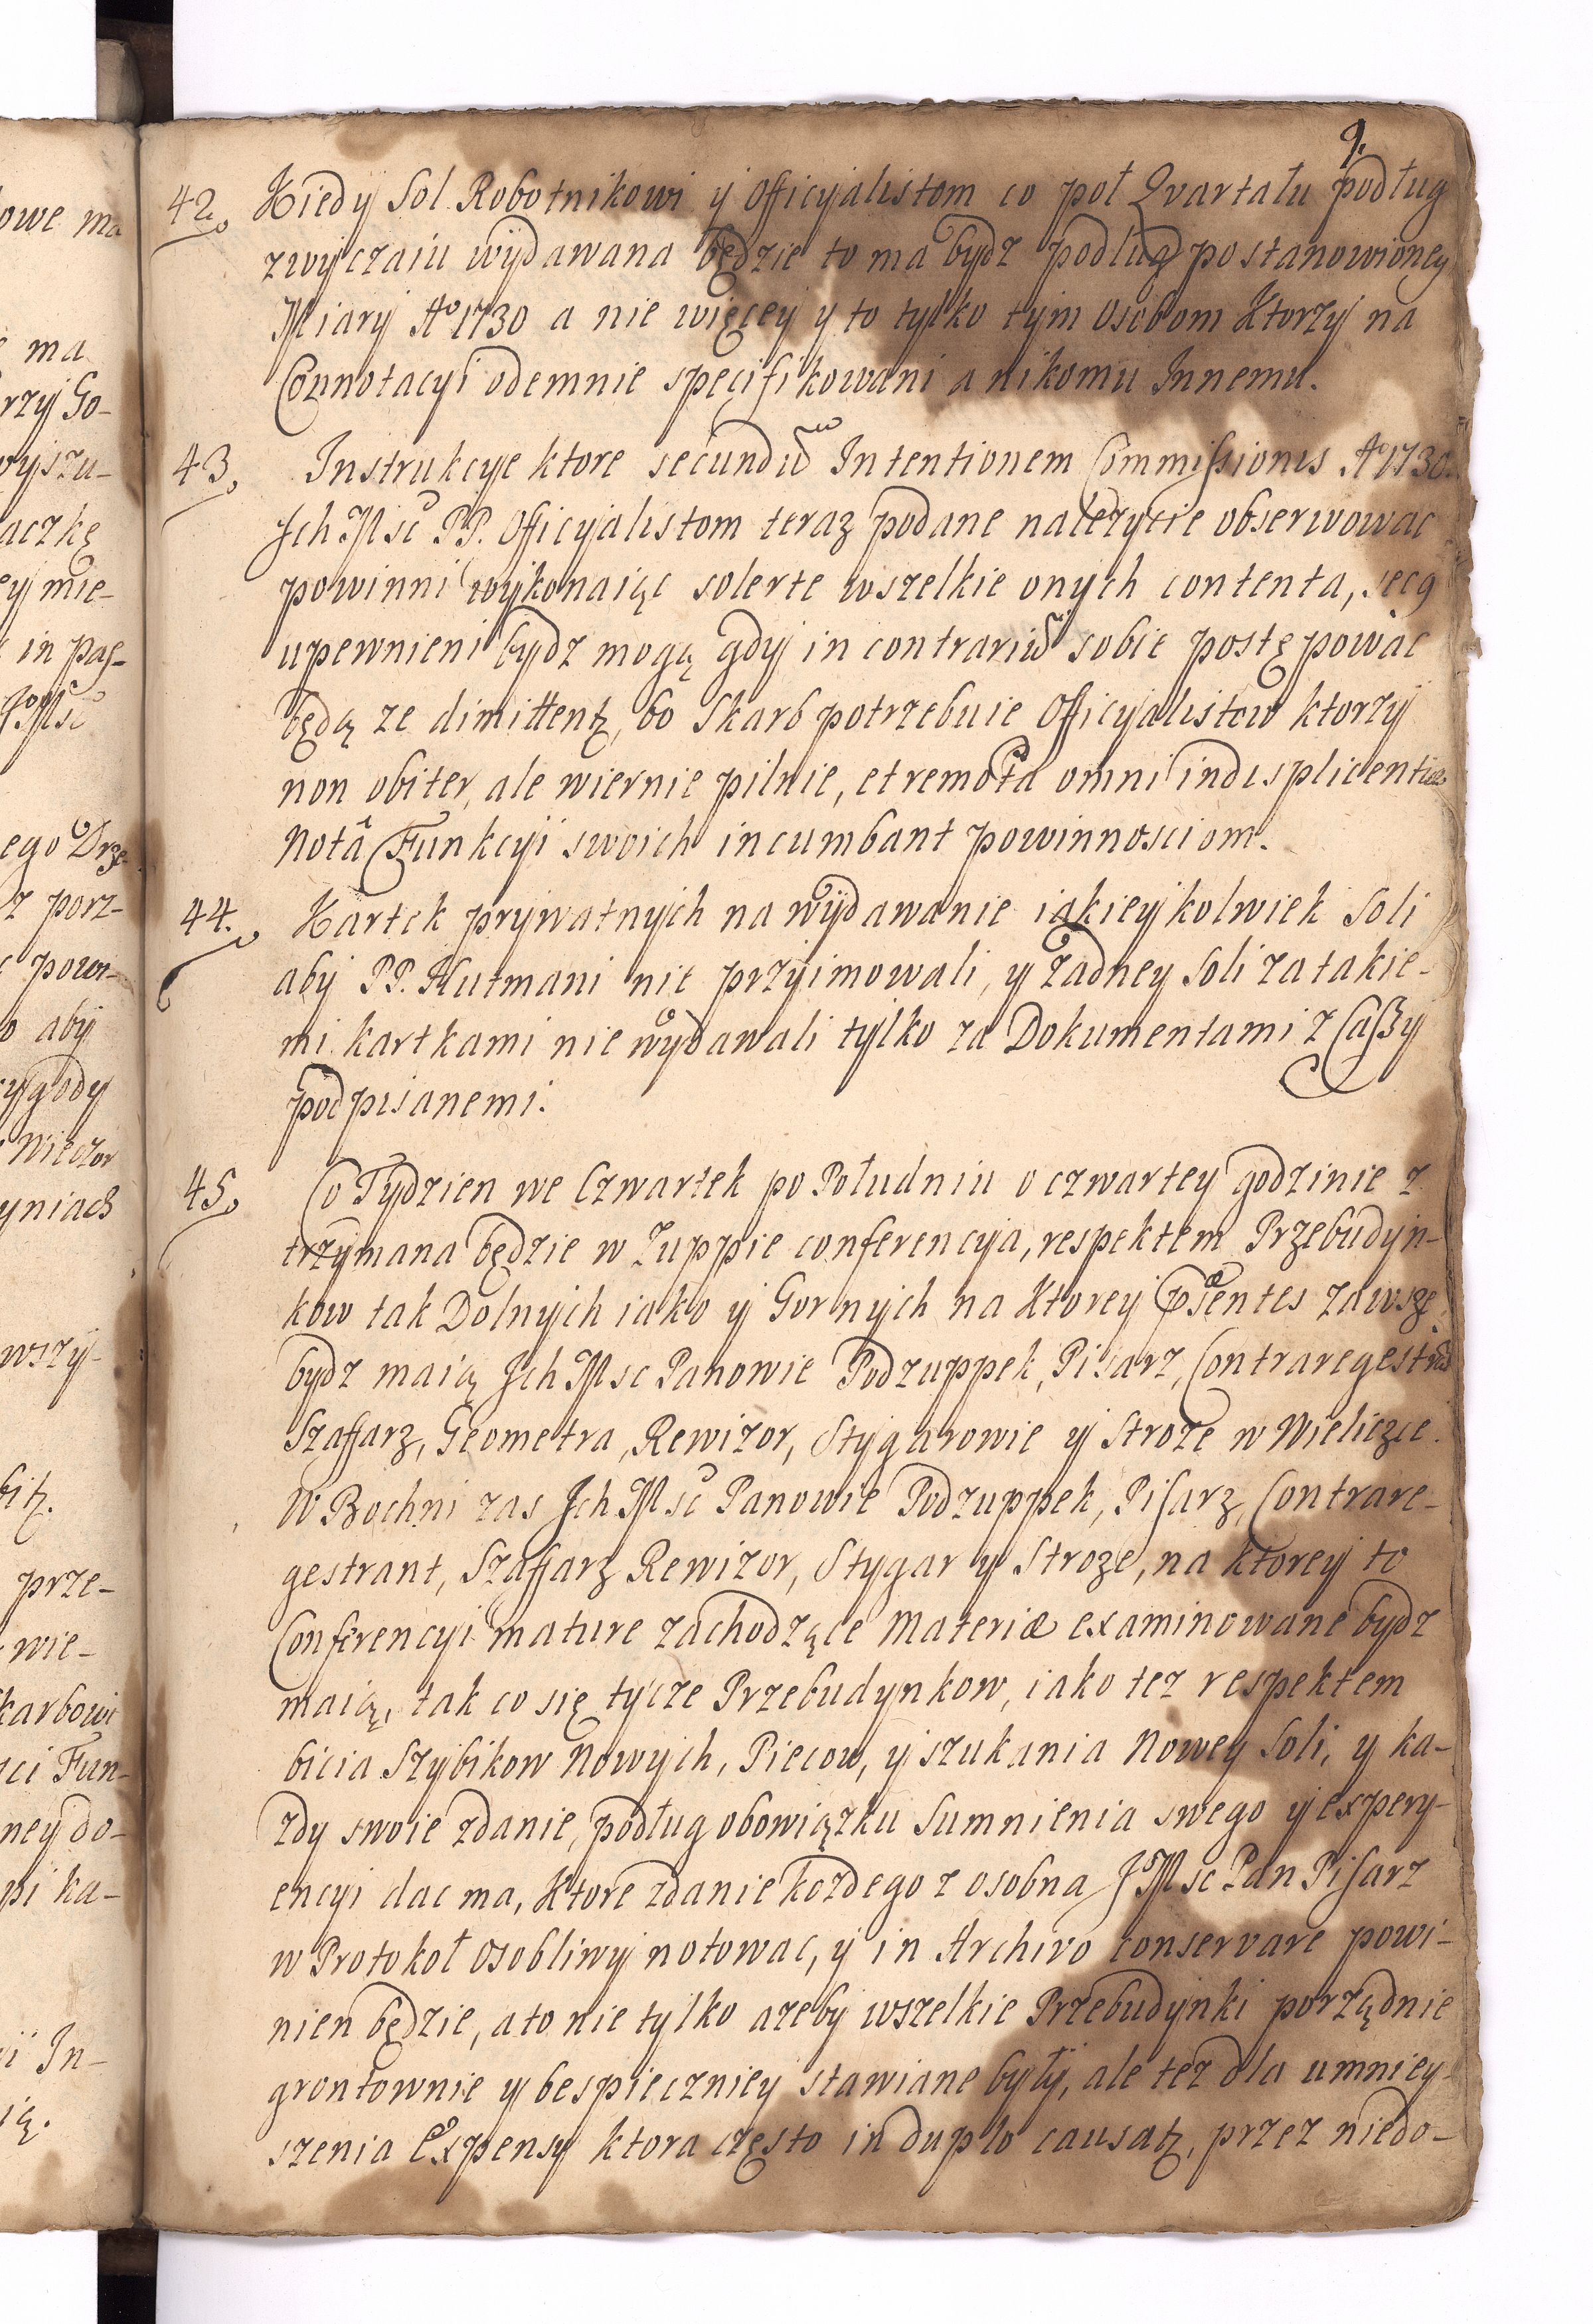 9.
42. Kiedy Sol Robotnikowi y Officyalistom co poł Qvartału podług
zwyczaiu wydawana będzie to ma bydz podług postanowioney
Miary Aº 1730 a nie więcey y to tylko tym Osobom Ktorzy na
Connotacyi odemnie specifikowani a nikomu Innemu.
43. Instrukcye ktore secundũ Intentionem Commissionis Aº 1730.
Jch Msc PP. Officyalistom teraz podane należycie obserwowac
powinni wykonaiąc solerte wszelkie onych contenta, secq
upewnieni bydz mogą gdy in contrariũ sobie postępowac
będą ze dimittentꝫ, bo Skarb potrzebuie Officyalistow ktorzy
non obiter, ale wiernie pilnie, et remota omni indisplicentiæ
Notâ Funkcyi swoich incumbant powinnosciom.
44. Kartek prywatnych na wydawanie iakieykolwiek Soli
aby PP. Hutmani nie przyimowali, y żadney Soli za takie-
mi kartkami nie wydawali tylko za Dokumentami z Cassy
podpisanemi.
45. Co Tydzien we Czwartek po Południu o czwartey godzinie z
trzymana będzie w Żuppie conferencya, respektem Przebudyn-
kow tak Dolnych iako y Gornych na Ktorey p̃sentes zawsze
bydz maią Jch Msc Panowie Podzuppek, Pisarz, Contraregestrãs
Szaffarz, Geometra, Rewizor, Stygarowie y Stroże w Wieliczce.
W Bochni zas Jch Msc Panowie Podzuppek, Pisarz, Contrare-
gestrant, Szaffarz Rewizor, Stygar y Stroze, na ktorey to
Conferencyi mature zachodzące Materiæ examinowane bydz
maią, tak co się tycze Przebudynkow, iako tez respektem
bicia Szybikow Nowych, Piecow, y szukania Nowey Soli, y ka-
zdy swoie zdanie, podług obowiązku Sumnienia swego y expery-
encyi dac ma, Ktore zdanie kozdego z osobna JMsc Pan Pisarz
w Protokoł osobliwy notowac, y in Archivo conservare powi-
nien będzie, a to nie tylko azeby wszelkie Przebudynki porządnie
grontownie y bespieczniey stawiane były, ale tez dla umniey-
szenia Expensy ktora często in duplo causatꝫ, przez niedo-